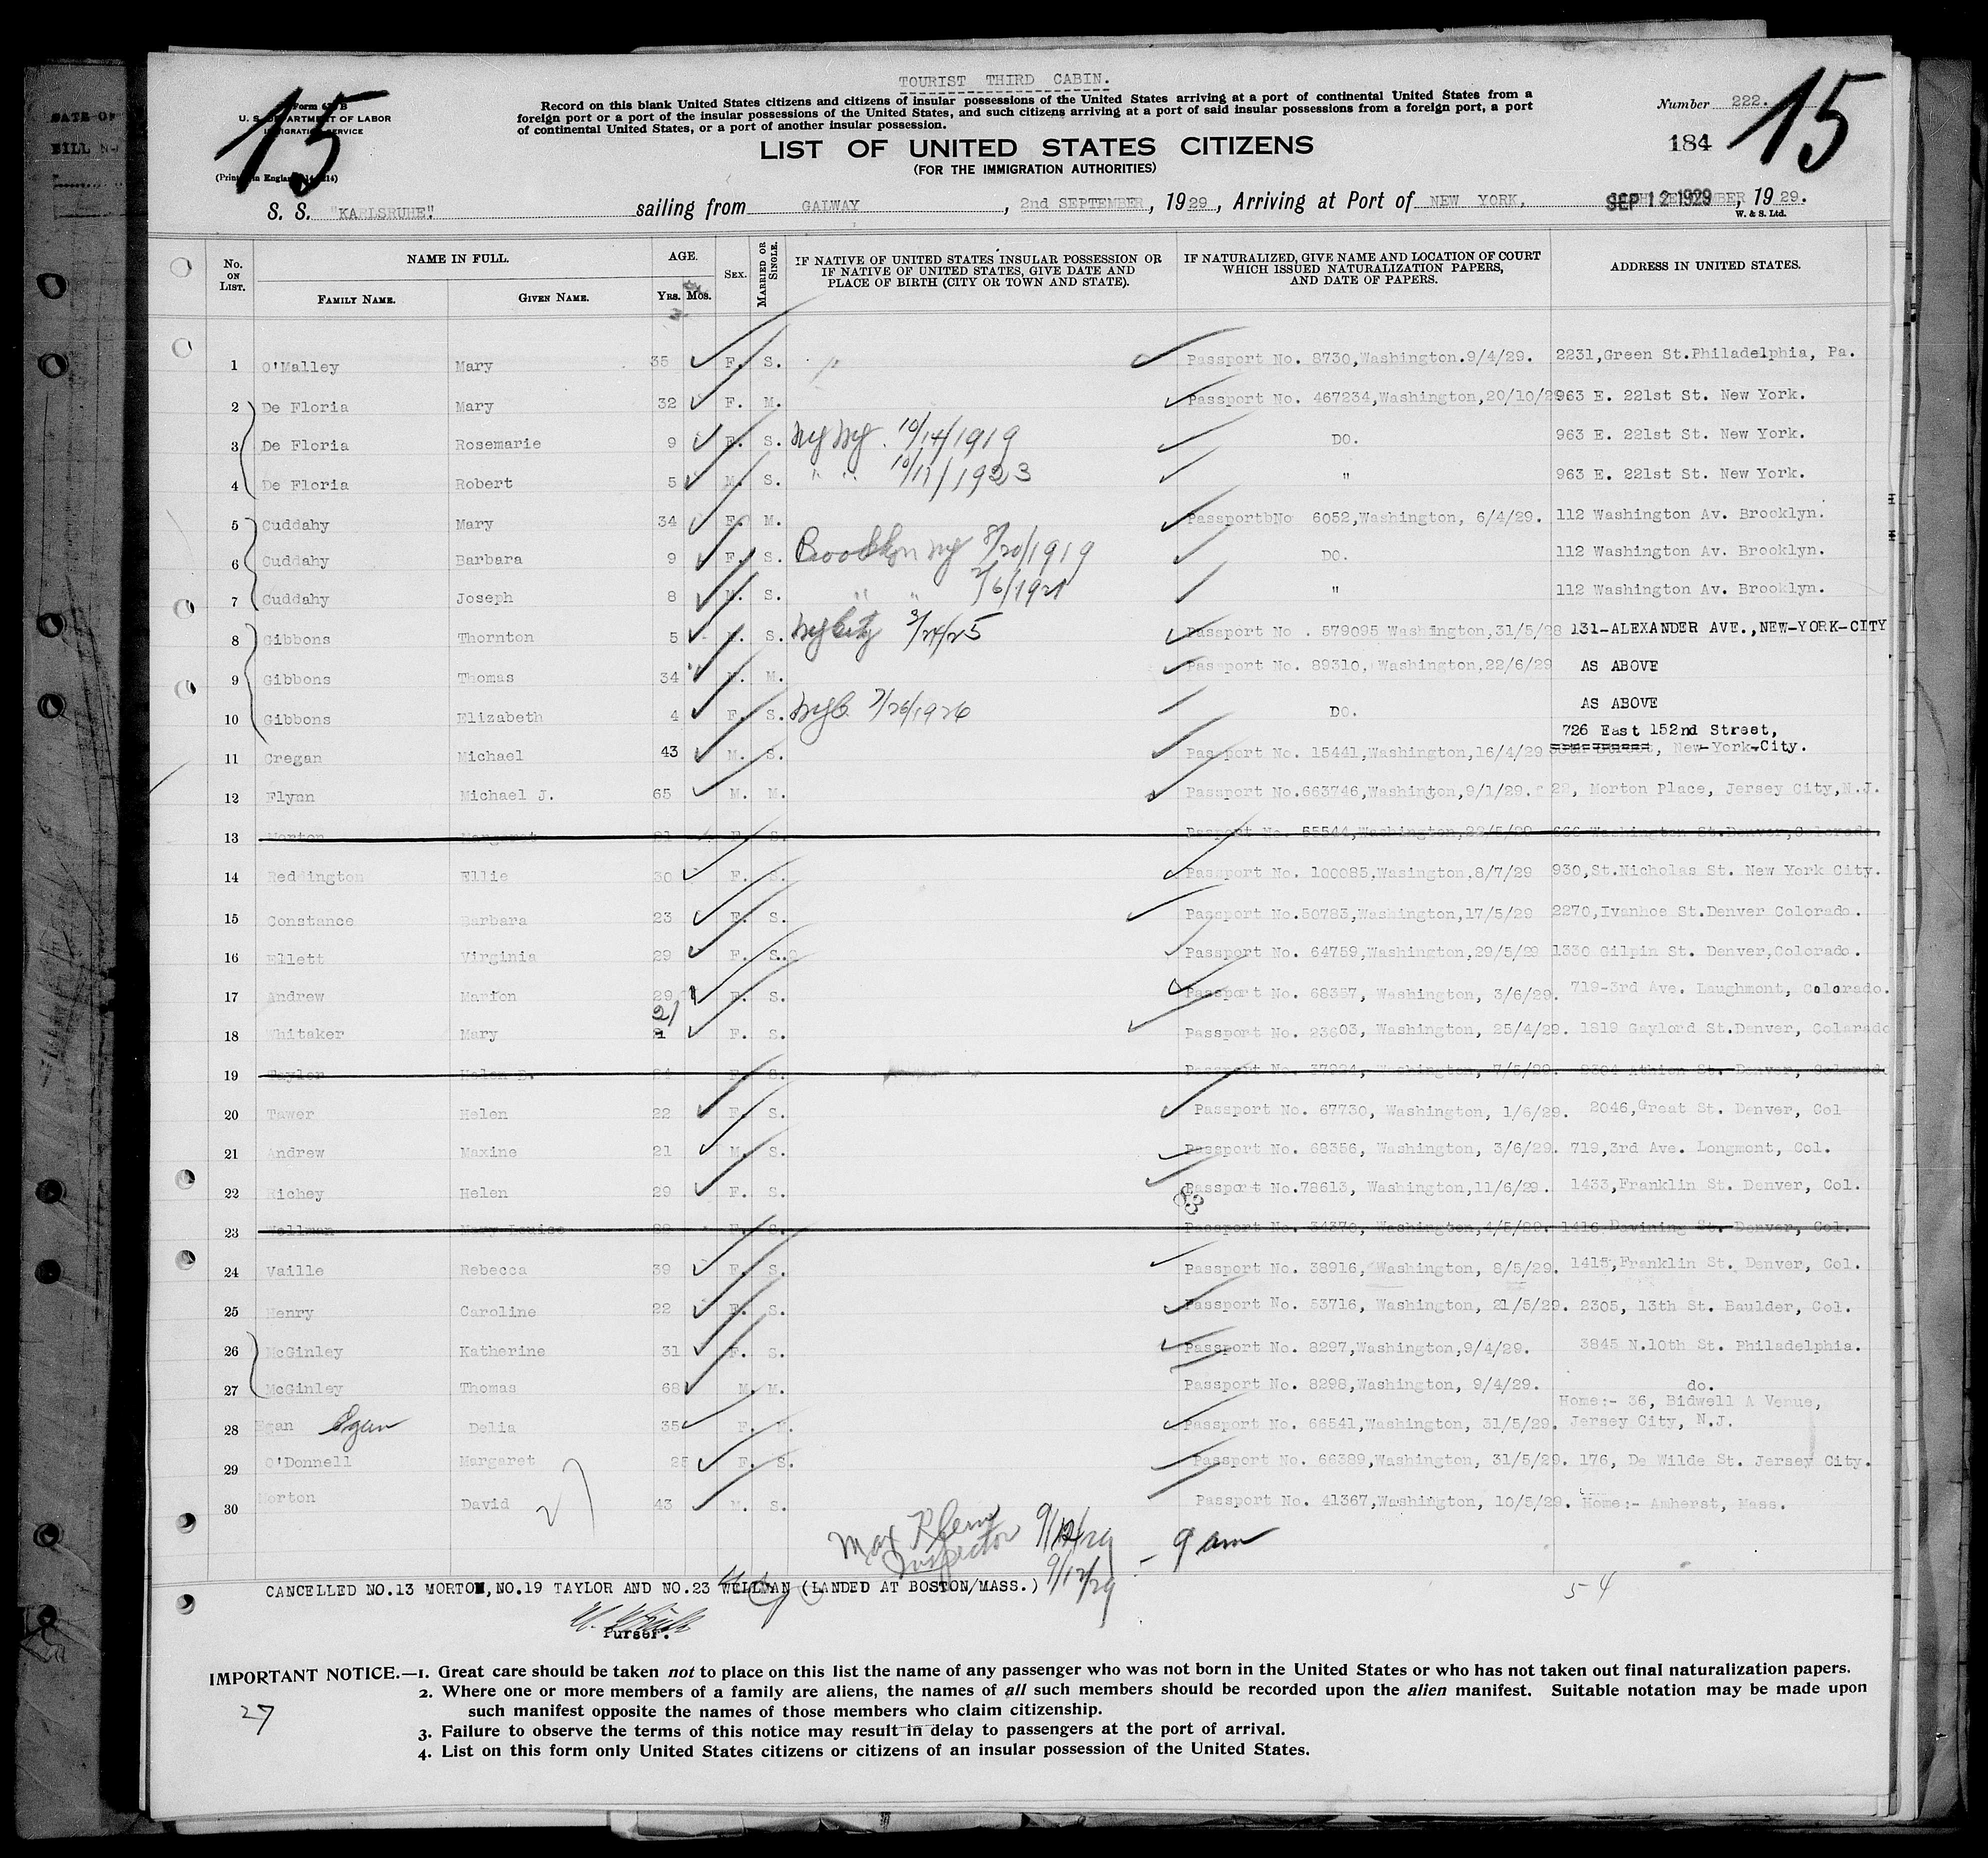 TOURIST THIRD CABIN.
15
Form 630 B
U. S. DEPARTMENT OF LABOR
IMMIGRATION SERVICE
(Printed in England)
Record on this blank United States citizens and citizens of insular possessions of the United States arriving at a port of continental United States from a
foreign port or a port of the insular possessions of the United States, and such citizens arriving at a port of said insular possessions from a foreign port, a port
of continental United States, or a port of another insular possession.
Number 222.
184
15
LIST OF UNITED STATES CITIZENS
(FOR THE IMMIGRATION AUTHORITIES)
S. S. "KARLSRUHE" sailing from GALWAY, 2nd SEPTEMBER, 1929, Arriving at Port of NEW YORK, SEP 12 1929, 1929.
W. & S. Ltd.
No. ON LIST. NAME IN FULL. FAMILY NAME. GIVEN NAME. AGE. YRS. MOS. SEX. MARRIED OR SINGLE. IF NATIVE OF UNITED STATES INSULAR POSSESSION OR IF NATIVE OF UNITED STATES, GIVE DATE AND PLACE OF BIRTH (CITY OR TOWN AND STATE). IF NATURALIZED, GIVE NAME AND LOCATION OF COURT WHICH ISSUED NATURALIZATION PAPERS, AND DATE OF PAPERS. ADDRESS IN UNITED STATES.
1 O'Malley Mary 35 F. S. Passport No. 8730,Washington.9/4/29. 2231,Green St.Philadelphia, Pa.
2 De Floria Mary 32 F. M. Passport No. 467234,Washington,20/10/2 963 E. 221st St. New York.
3 De Floria Rosemarie 9 F. S. NY NY. 10/14/1919 DO. 963 E. 221st St. New York.
4 De Floria Robert 5 M. S. " " 10/17/1923 " 963 E. 221st St. New York.
5 Cuddahy Mary 34 F. M. PassportbNo 6052,Washington, 6/4/29. 112 Washington Av. Brooklyn.
6 Cuddahy Barbara 9 F. S. Brooklyn NY 8/20/1919 DO. 112 Washington Av. Brooklyn.
7 Cuddahy Joseph 8 M. S. " " 2/6/1921 " 112 Washington Av. Brooklyn.
8 Gibbons Thornton 5 M. S. NY City 3/24/25 Passport No . 579095 Washington,31/5/28 131-ALEXANDER AVE.,NEW-YORK-CITY
9 Gibbons Thomas 34 M. M. Passport No. 89310, Washington,22/6/29 AS ABOVE
10 Gibbons Elizabeth 4 F. S. NYC. 7/26/1926 DO. AS ABOVE
726 East 152nd Street,
11 Cregan Michael 43 M. S. Passport No. 15441,Washington,16/4/29 New-York-City.
12 Flynn Michael J. 65 M. M. Passport No.663746,Washington,9/1/29. 22, Morton Place, Jersey City,N.J.
13 Morton Margaret 21 F. S. Passport No. 55544,Washington,22/5/29 666 Washington St.Denver,Colorado.
14 Reddington Ellie 30 F. S. Passport No. 100085,Wasington,8/7/29 930,St.Nicholas St. New York City.
15 Constance Barbara 23 F. S. Passport No.50783,Washington,17/5/29 2270,Ivanhoe St.Denver Colorado.
16 Ellett Virginia 29 F. S. Passport No. 64759,Washington,29/5/29 1330 Gilpin St. Denver,Colorado.
17 Andrew Marion 29 F. S. Passport No. 68357, Washington, 3/6/29. 719-3rd Ave. Laughmont, Colorado.
21
18 Whitaker Mary F. S. Passport No. 23603, Washington, 25/4/29. 1819 Gaylord St.Denver, Colarado
19 Taylor Helen E. 24 F. S. Passport No. Washington, 7/5/29. St. Denver, Colorado
20 Tawer Helen 22 F. S. Passport No. 67730, Washington, 1/6/29. 2046,Great St. Denver, Col
21 Andrew Maxine 21 M. S. Passport No. 68356, Washington, 3/6/29. 719,3rd Ave. Longmont, Col.
22 Richey Helen 29 F. S. Passport No.78613, Washington,11/6/29. 1433,Franklin St. Denver, Col.
23 Wellman Mary Louise F. S. Passport No. 34370, Washington,4/5/29. 1416 St. Denver, Col.
24 Vaille Rebecca 39 F. S. Passport No. 38916, Washington, 8/5/29. 1415,Franklin St. Denver, Col.
25 Henry Caroline 22 F. S. Passport No. 53716, Washington, 21/5/29. 2305, 13th St. Baulder, Col.
26 McGinley Katherine 31 F. S. Passport No. 8297,Washington,9/4/29. 3845 N.10th St. Philadelphia.
27 McGinley Thomas 68 M. M. Passport No. 8298,Washington, 9/4/29. do.
Home:- 36, Bidwell A Venue,
28 Egan Egan Delia 35 F. M. Passport No. 66541,Washington, 31/5/29. Jersey City, N.J.
29 O'Donnell Margaret 25 F. S. Passport No. 66389,Washington, 31/5/29. 176, De Wilde St. Jersey City.
30 Morton David 43 M. S. Passport No. 41367,Washington, 10/5/29. Home:- Amherst, Mass.
27
Max Inspector 9/12/29 - 9 am
9/12/29
CANCELLED NO.13 MORTON,NO.19 TAYLOR AND NO.23 WELLMAN (LANDED AT BOSTON/MASS.)
54
Purser.
IMPORTANT NOTICE.—1. Great care should be taken not to place on this list the name of any passenger who was not born in the United States or who has not taken out final naturalization papers.
2. Where one or more members of a family are aliens, the names of all such members should be recorded upon the alien manifest. Suitable notation may be made upon
such manifest opposite the names of those members who claim citizenship.
27
3. Failure to observe the terms of this notice may result in delay to passengers at the port of arrival.
4. List on this form only United States citizens or citizens of an insular possession of the United States.